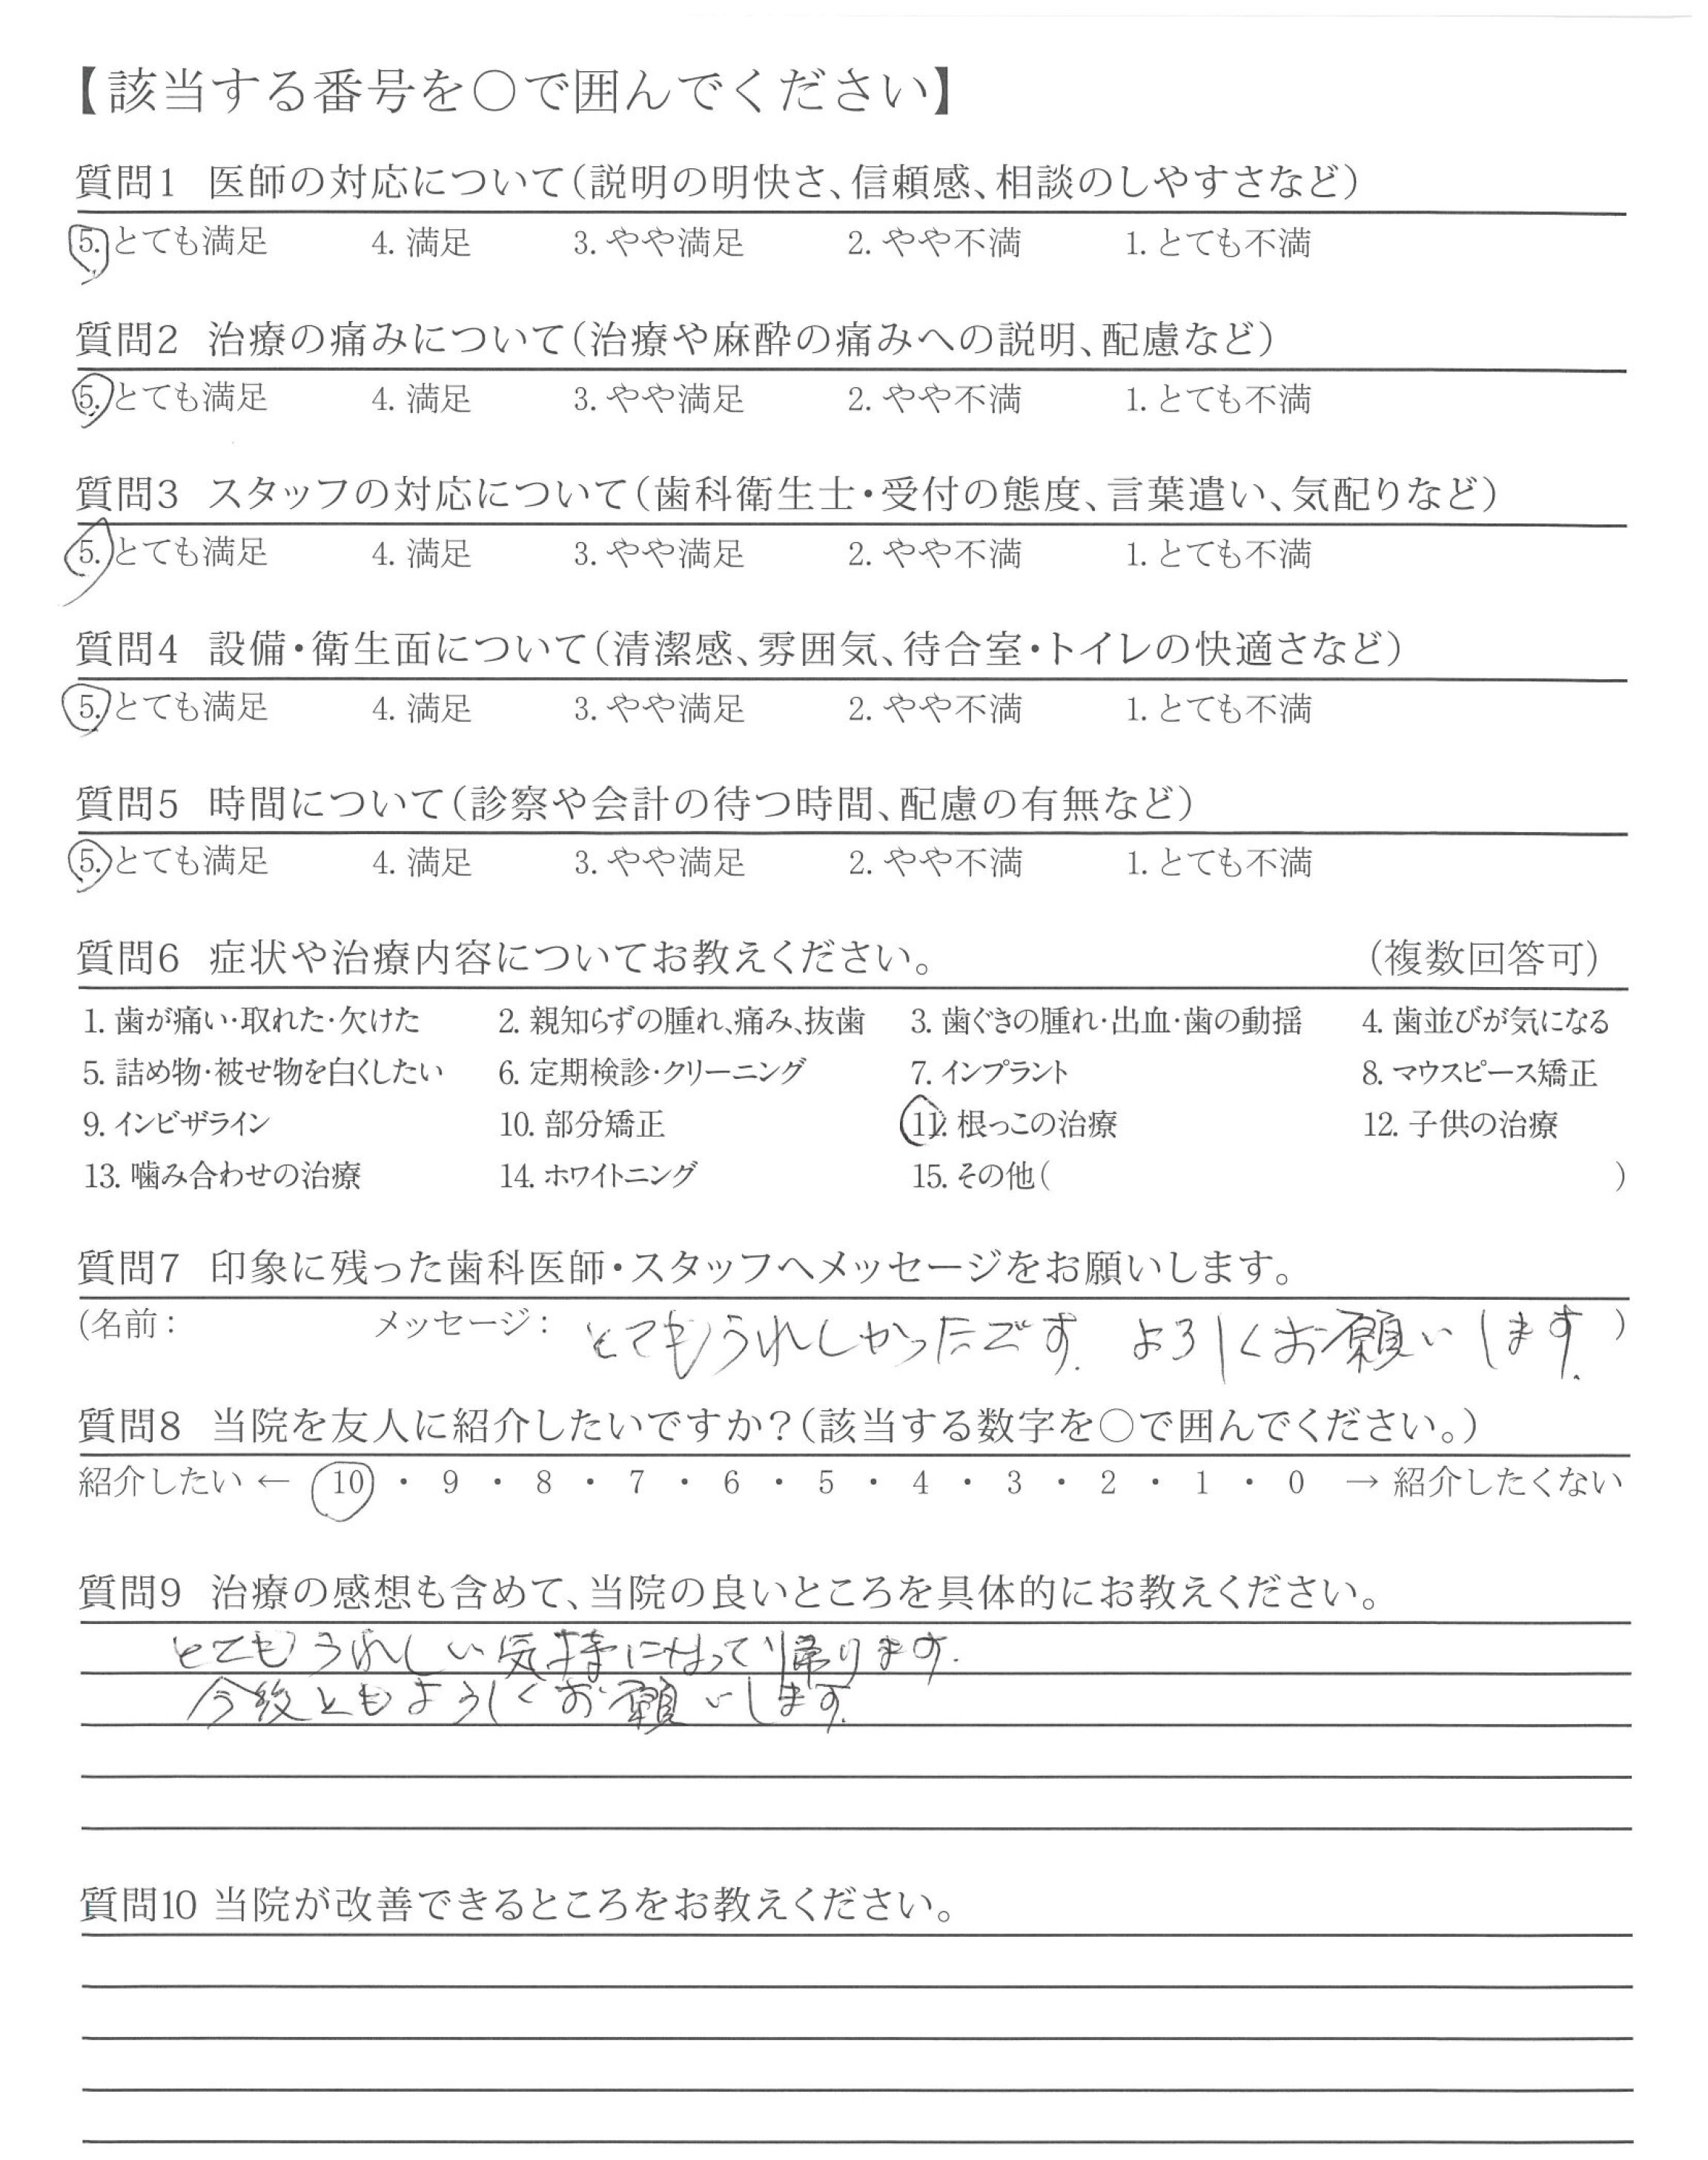 【該当する番号を○で囲んでください】
質問1 医師の対応について(説明の明快さ、信頼感、相談のしやすさなど)
5. とても満足 4. 満足 3. やや満足 2. やや不満 1. とても不満
質問2 治療の痛みについて(治療や麻酔の痛みへの説明、配慮など)
5. とても満足 4. 満足 3. やや満足 2. やや不満 1. とても不満
質問3 スタッフの対応について(歯科衛生士・受付の態度、言葉遣い、気配りなど)
5. とても満足 4. 満足 3. やや満足 2. やや不満 1. とても不満
質問4 設備・衛生面について(清潔感、雰囲気、待合室・トイレの快適さなど)
5. とても満足 4. 満足 3. やや満足 2. やや不満 1. とても不満
質問5 時間について(診察や会計の待つ時間、配慮の有無など)
5. とても満足 4. 満足 3. やや満足 2. やや不満 1. とても不満
質問6 症状や治療内容についてお教えください。 (複数回答可)
1. 歯が痛い・取れた・欠けた 2. 親知らずの腫れ、痛み、抜歯 3. 歯ぐきの腫れ・出血・歯の動揺 4. 歯並びが気になる
5. 詰め物・被せ物を白くしたい 6. 定期検診・クリーニング 7. インプラント 8. マウスピース矯正
9. インビザライン 10. 部分矯正 11. 根っこの治療 12. 子供の治療
13. 噛み合わせの治療 14. ホワイトニング 15. その他( )
質問7 印象に残った歯科医師・スタッフへメッセージをお願いします。
(名前: メッセージ: とてもうれしかったです. よろしくお願いします. )
質問8 当院を友人に紹介したいですか?(該当する数字を○で囲んでください。)
紹介したい ← 10 ・ 9 ・ 8 ・ 7 ・ 6 ・ 5 ・ 4 ・ 3 ・ 2 ・ 1 ・ 0 → 紹介したくない
質問9 治療の感想も含めて、当院の良いところを具体的にお教えください。
とてもうれしい気持になって帰ります.
今後ともよろしくお願いします.
質問10 当院が改善できるところをお教えください。